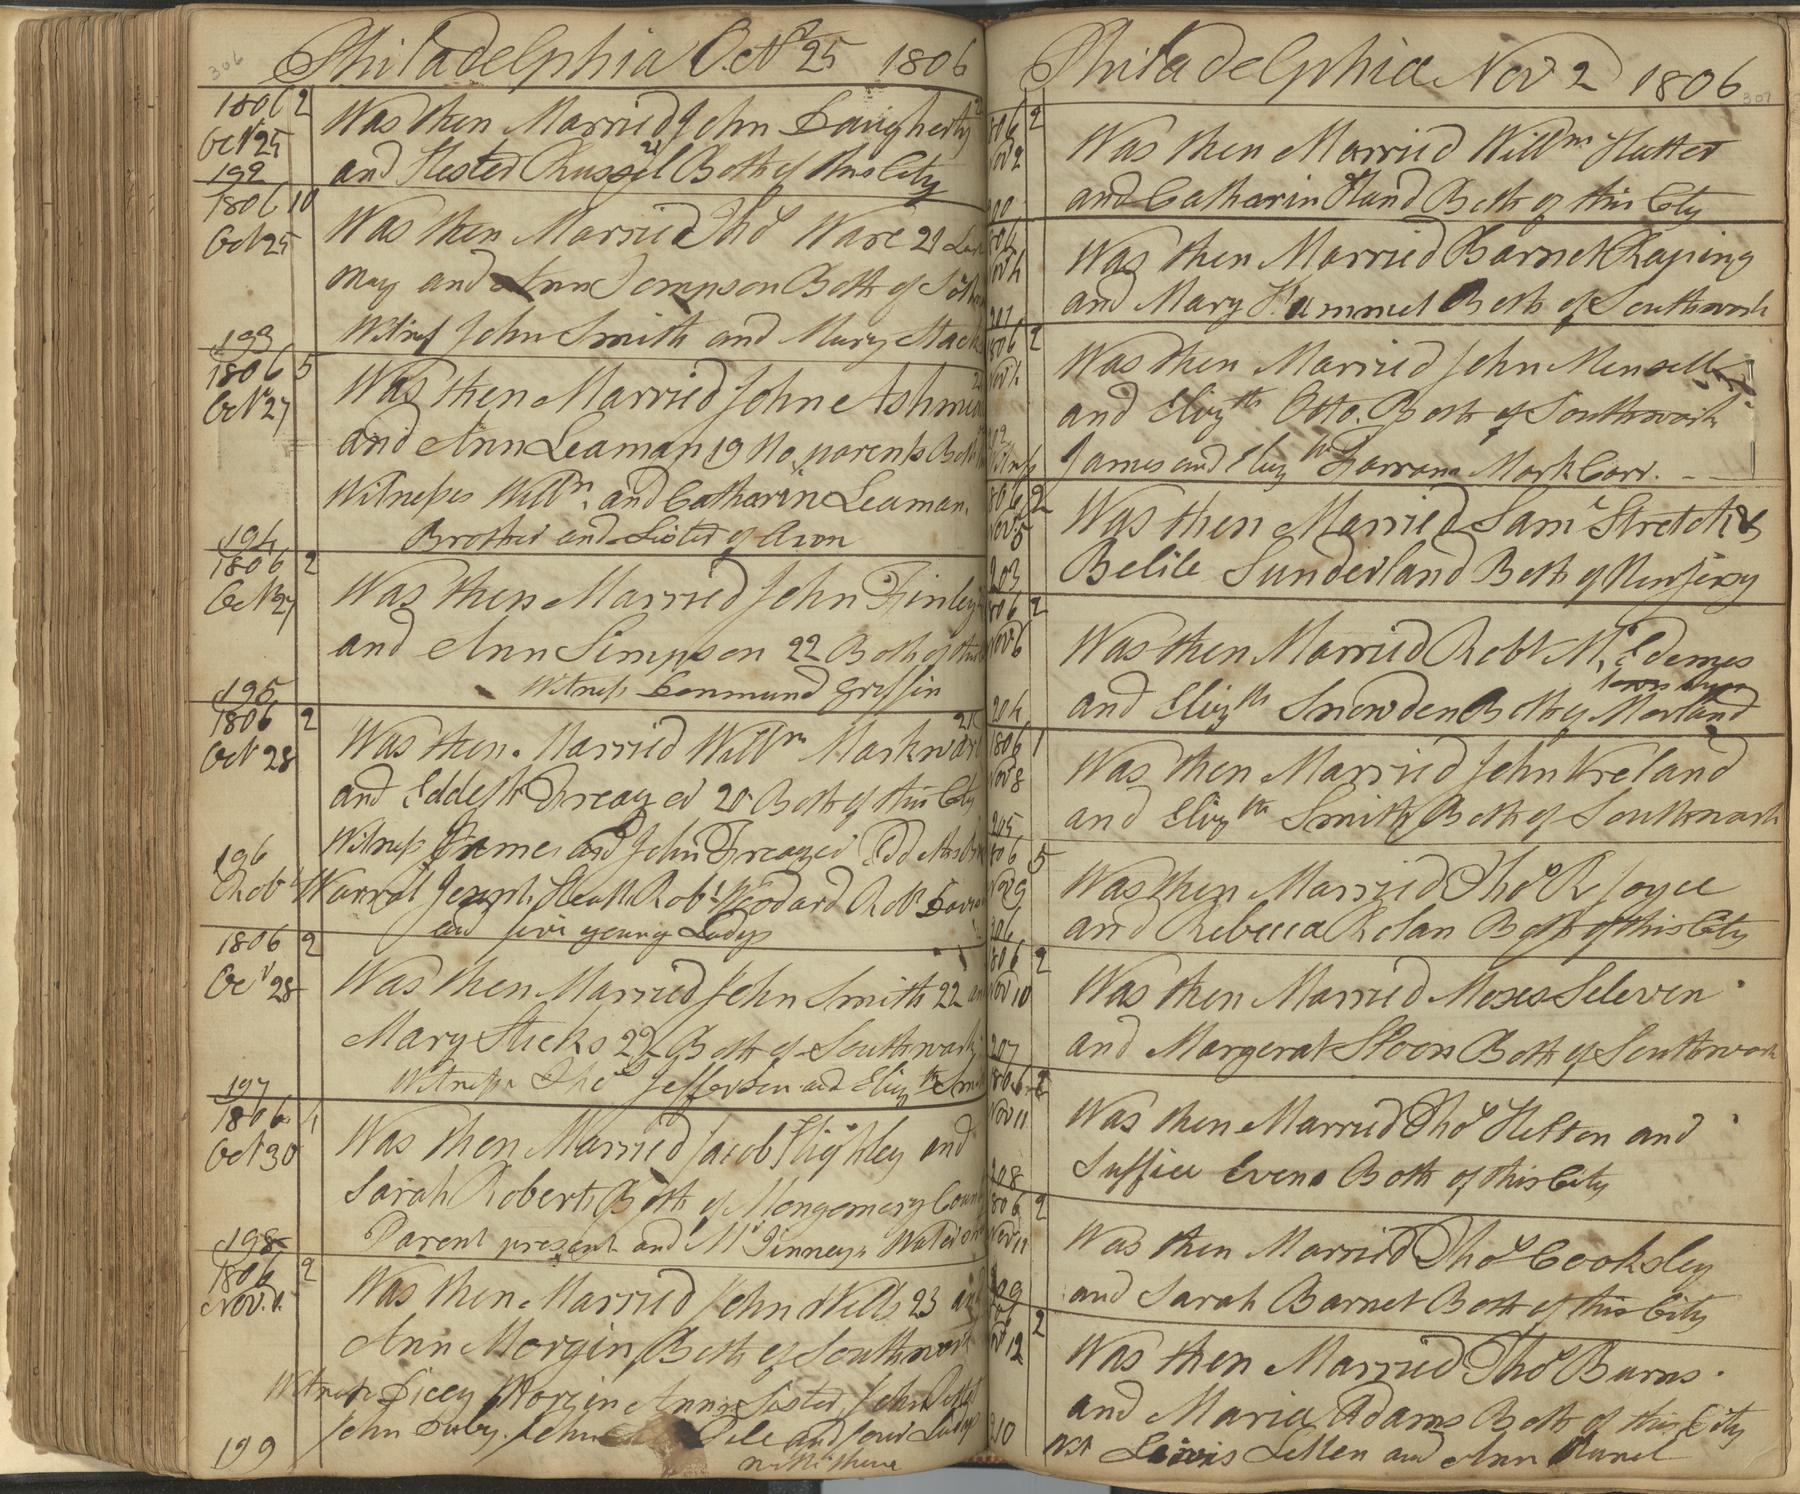 306
Philadelphia Octr 25 1806
1806 2
Octr 25
192
Was then Married John Daugherty 22
and Hester Russel 21 Both of this City
1806 10
Oct 25
Was then Married Thos Ware 21
May and Ann Tompson Both of
Witness John Smith and Mary
193
1806 5
Octr 27
Was then Married John
and Ann Leaman 19 No parents Both
Witnesses Willm. and Catharin Leaman.
Brother and Sister of Ann
194
1806 2
Oct 27
Was then Married John Finley
and Ann Simpson 22 Both of this
Witness Griffin
195
1806 2
Oct 28
Was then Married Willm
and 20 Both of this City
Witness James and John
196
Robt Joseph Robt Woodard Robt
and five young Ladys
1806 2
Oct 28
Was then Married John Smith 22 and
Mary Sticks 22 Both of Southwark
Witness Thos Jefferson and Elizth
197
1806 4
Oct 30
Was then Married Jacob and
Sarah Roberts Both of Mongomery
Parent present and
198
1806 2
Nov. 1.
Was then Married John Wells 23 and
Ann Morgin Both of Southwark
Witness Dicey Morgin Anns Sister John
John John and four Ladys
199
307
Philadelphia Nov 2 1806
1806 2
Nov 2
200
Was then Married Willm Hutter
and Catharin Hand Both of this City
1806
Nov 4
201
Was then Married Barnet Raping
and Mary Both of Southwark
1806 2
Nov 4
202
Was then Married John
and Elizth Otto. Both of Southwark
Witness James and Elizth Mark Carr.
1806 2
Nov 5
203
Was then Married Saml Stretch &
Belile Sunderland Both of New Jersey
1806 2
Nov 6
204
Was then Married Robt
and Elizth Snowden Both of
1806 1
Nov 8
205
Was then Married John Vreland
and Elizth Smith Both of Southwark
1806 5
Nov 9
206
Was then Married Thos R Joyce
and Rebecca Rolan Both of this City
1806 2
Nov 10
207
Was then Married Moses Seleven
and Margerat Both of Southwark
1806 2
Nov 11
208
Was then Married Thos Helton and
Evens Both of this City
1806 2
Nov 11
209
Was then Married Thos Cooksley
and Sarah Barnet Both of this City
2
Nov 12
210
Was then Married Thos Burns.
and Maria Adams Both of this City
Wit Lewis and Ann